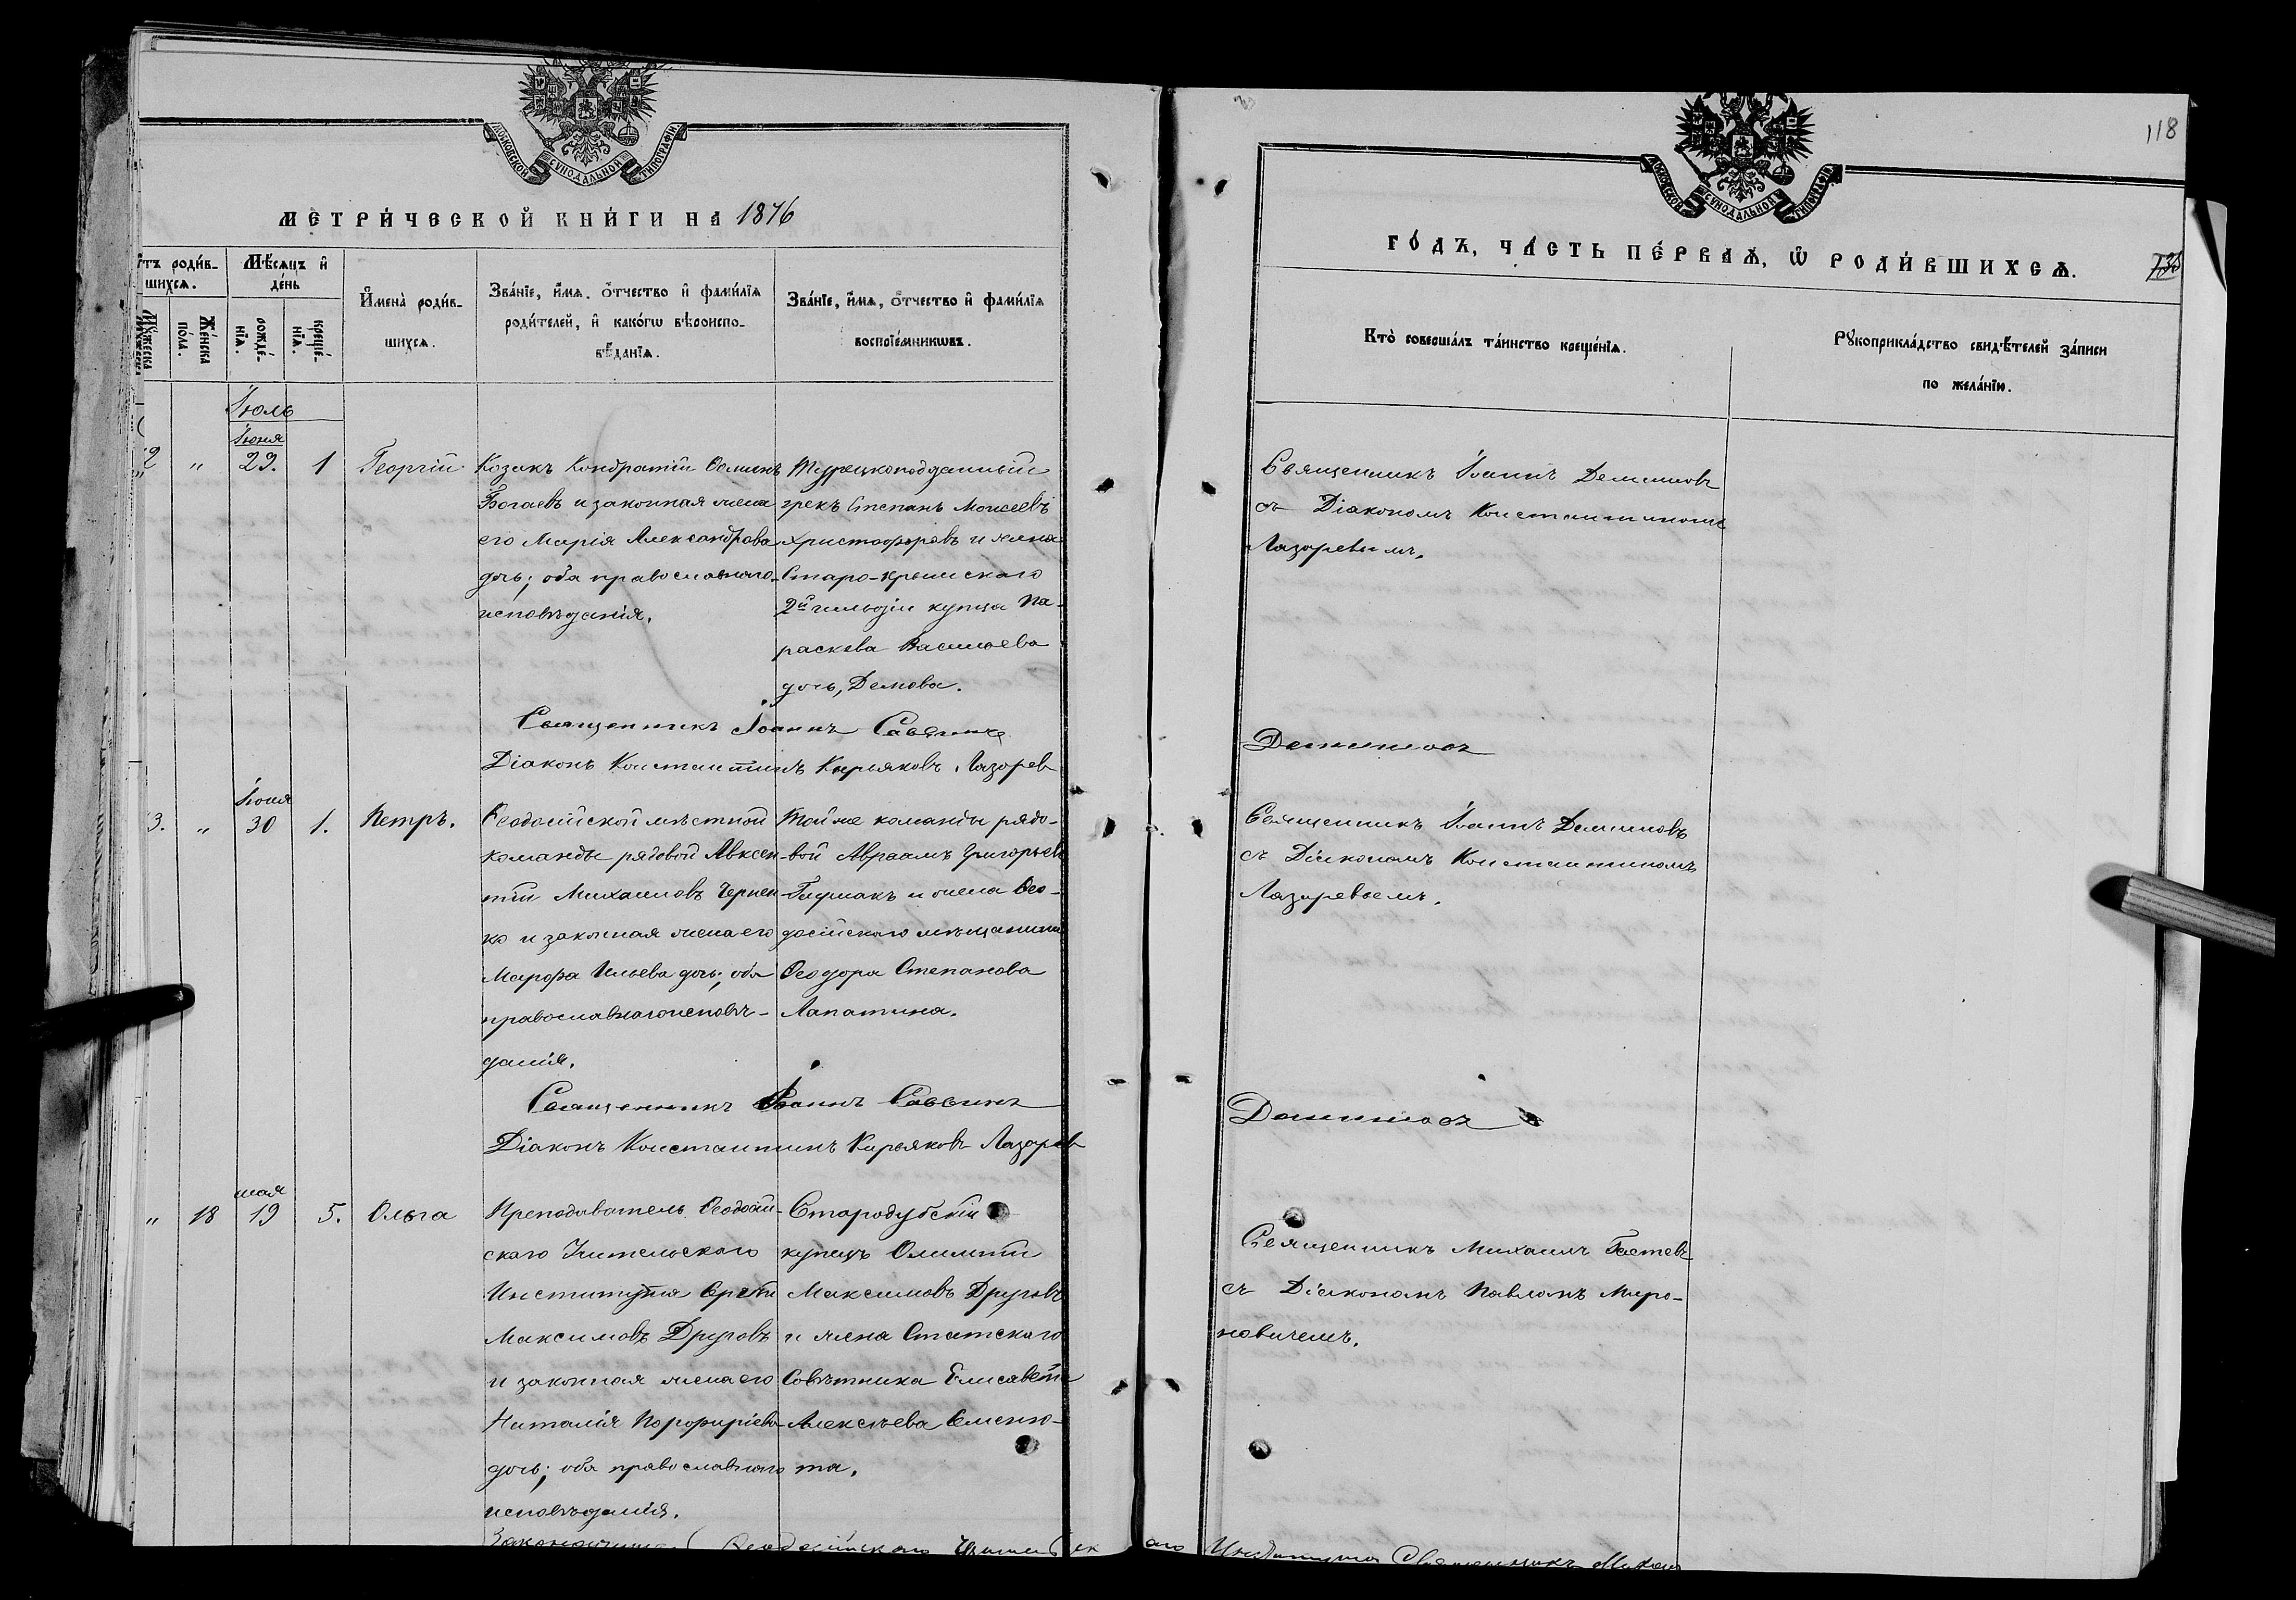 МОСКОВСКОЙ СѴНОДАЛЬНОЙ ТИПОГРАФІИ.
МЕТРИ́ЧЕСКОЙ КНИ́ГИ НА 1876
роди́в-
шихсѧ.
Мѣ́сѧцъ и҆
де́нь
Мꙋ́жеска
Же́нска
по́ла.
рожде́-
нїѧ.
креще́-
нїѧ.
И҆мена̀ роди́в-
шихсѧ.
Зва́нїе, и҆́мѧ, ѻ҆́тчество и҆ фами́лїѧ
роди́телей, и҆ како́гѡ вѣроиспо-
вѣ́данїѧ.
Зва́нїе, и҆́мѧ, ѻ҆́тчество и҆ фами́лїѧ
воспрїе́мникѡвъ.
Іюль
Іюня
2 " 29. 1 Георгій
Козакъ Кондратій
Богаевъ и законная жена
его Марія Александрова
дочь; оба православнаго
исповѣданія.
Турецкоподданный
грекъ Степанъ Моисеевъ
Христофоровъ и жена
Старо-Крымскаго
2й гильдіи купца Па-
раскева Васильева
дочь, Демова.
Священникъ Іоаннъ Саввинъ
Діаконъ Константинъ Кирьяковъ Лазоревъ
Іюня
3. " 30 1. Петръ.
Ѳеодосійской мѣстной
команды рядовой Авксен-
тій Михаиловъ Чернен-
ко и законная жена его
Марфа Ильева дочь; оба
православнаго исповѣ-
данія.
Той же команды рядо-
вой Авраамъ Григорьевъ
и жена Ѳео-
досійскаго мѣщанина
Ѳеодора Степанова
Лапатина.
Священникъ Іоаннъ Саввинъ
Діаконъ Константинъ Кирьяковъ Лазаревъ
мая
" 18 19 5. Ольга
Преподаватель Ѳеодосій-
скаго Учительскаго
Института
Максимовъ Друговъ
и законная жена его
Наталія Порфиріева
дочь; оба православнаго
исповѣданія.
Стародубскій
купецъ
Максимовъ Друговъ
и жена Статскаго
Совѣтника Елисавета
Алексѣева
та.
Ѳеодосійскаго
118
МОСКОВСКОЙ СѴНОДАЛЬНОЙ ТИПОГРАФІИ.
ГО́ДЪ, ЧА́СТЬ ПЕ́РВАѦ, Ѡ҆ РОДИ́ВШИХСѦ.
Кто̀ соверша́лъ та́инство креще́нїѧ.
Рꙋкоприкла́дство свидѣ́телей за́писи
по жела́нїю.
Священникъ Іоаннъ Деминовъ
съ Діакономъ Константиномъ
Лазаревымъ.
Священникъ Іоаннъ Деминовъ
съ Діакономъ Константиномъ
Лазаревымъ.
Священникъ Михаилъ
съ Діакономъ Павломъ Миро-
новичемъ.
Института Священникъ